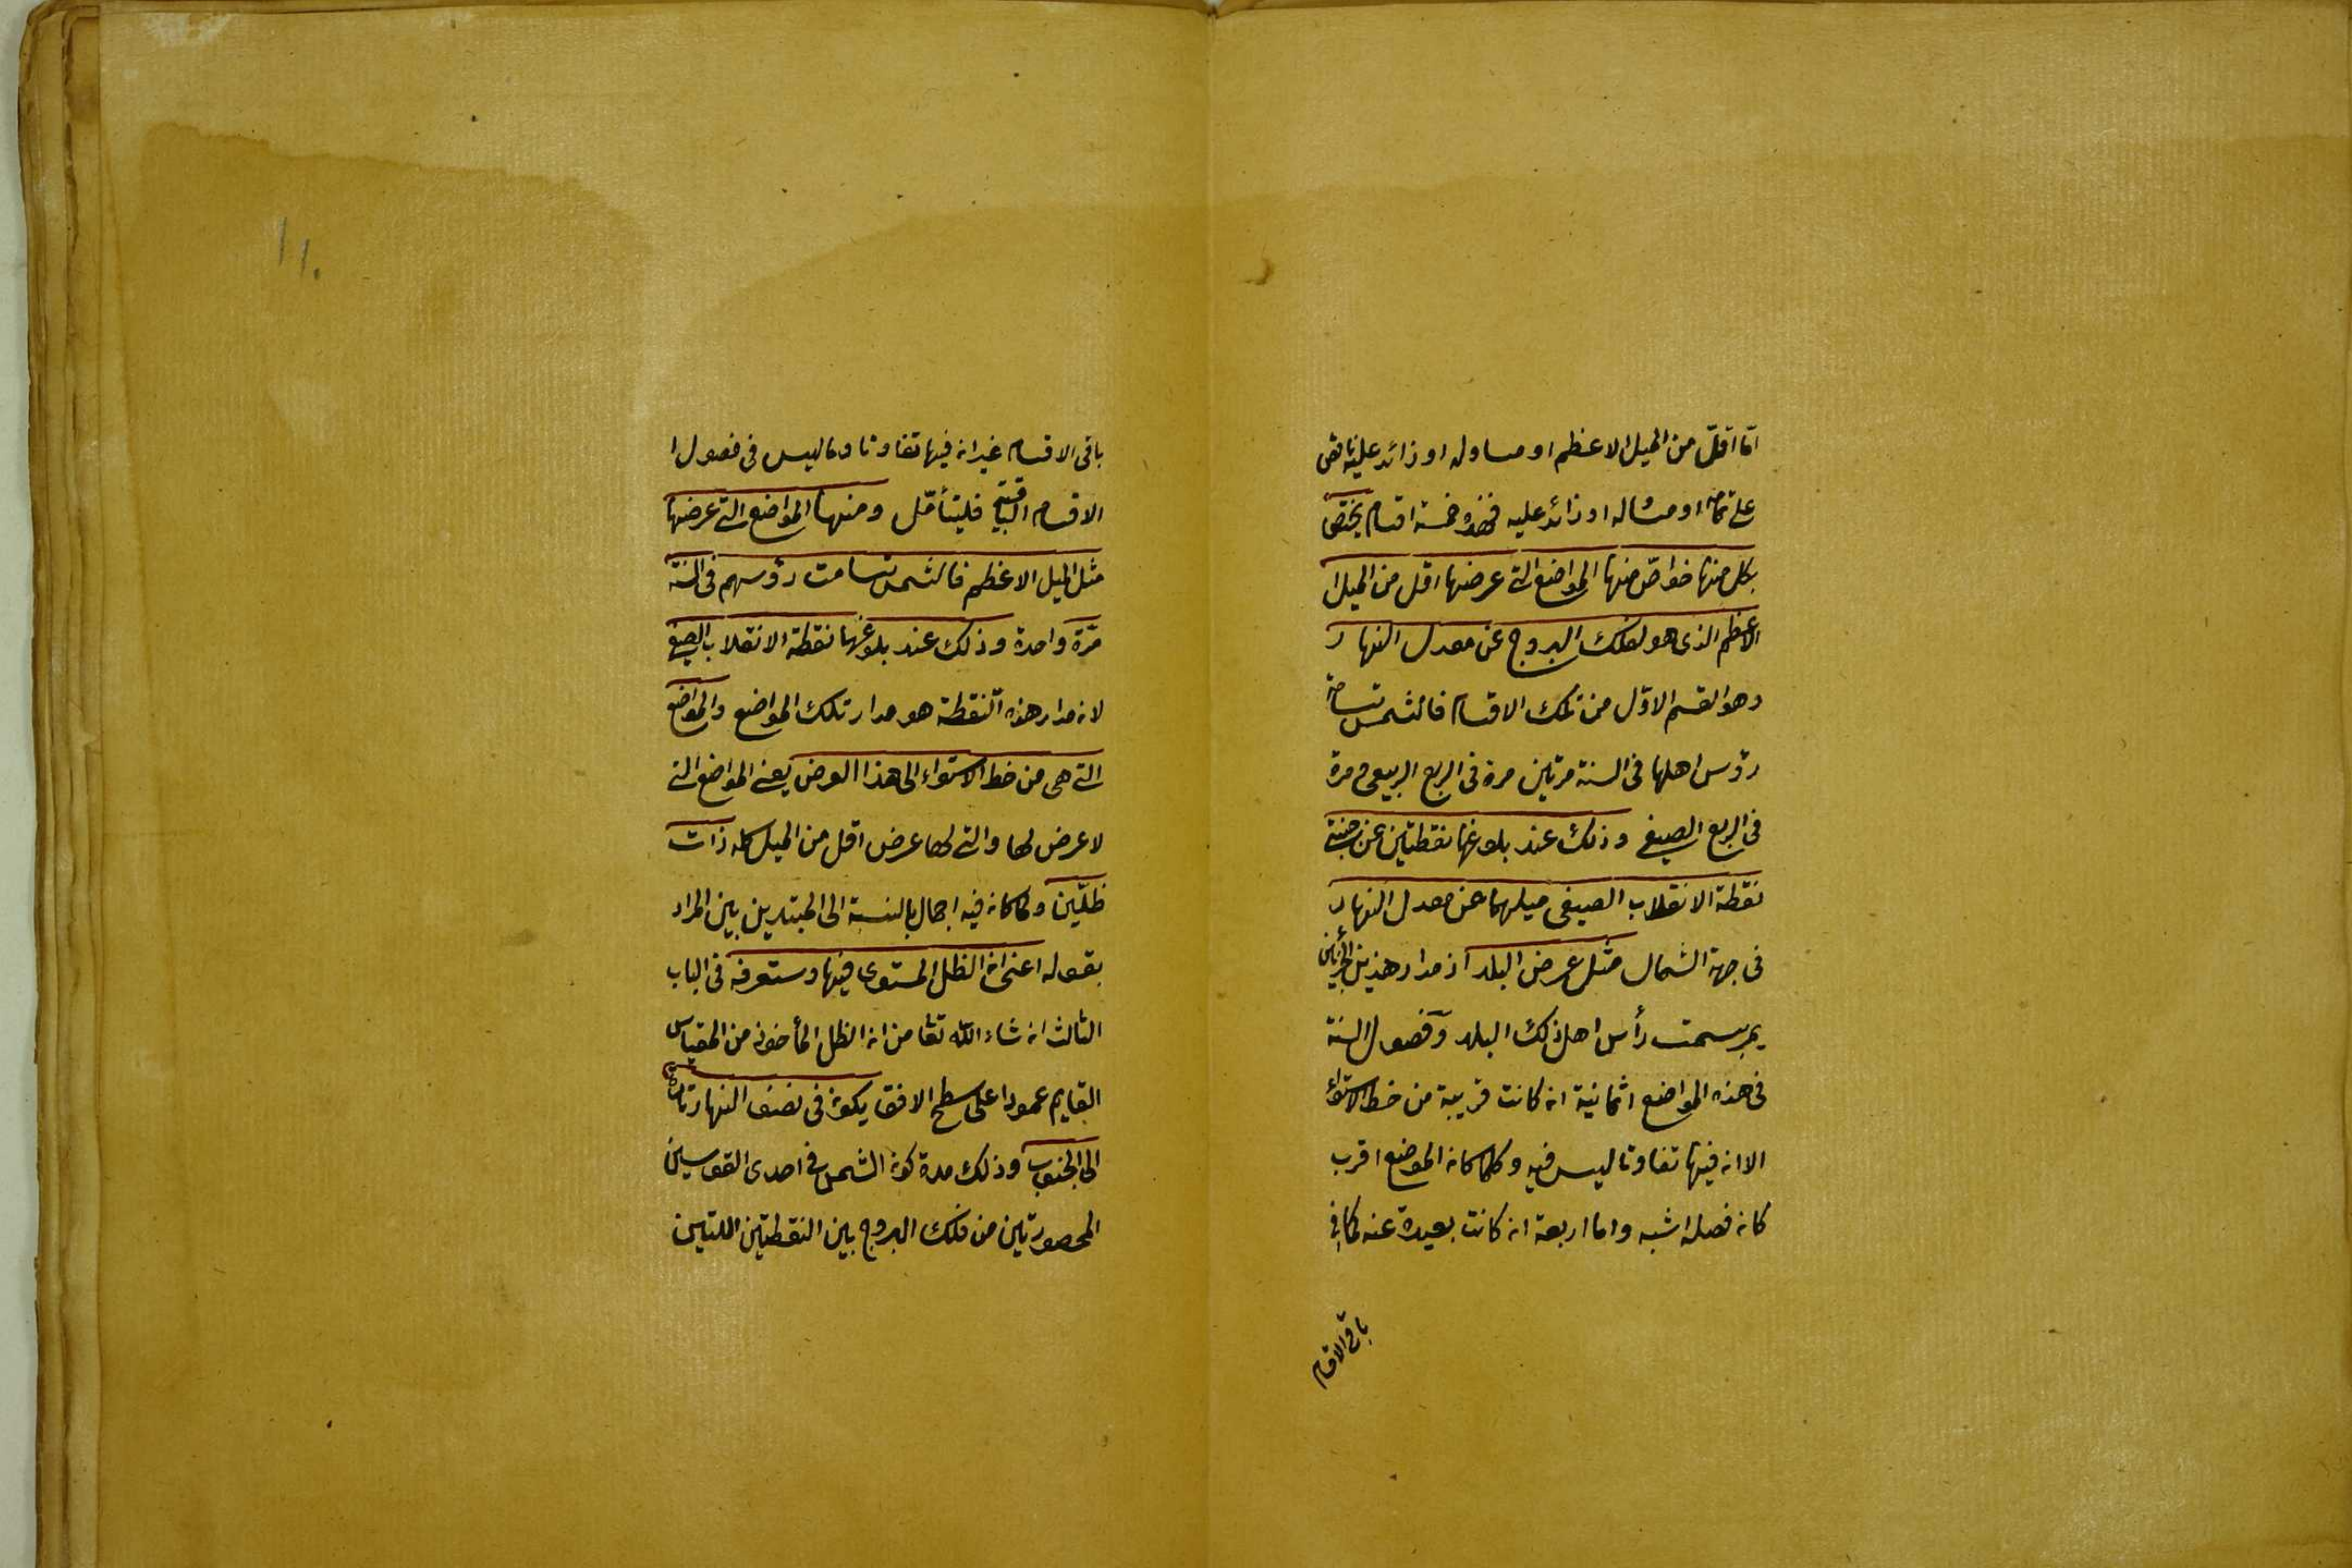 اما اقلّ من الميل الاعظم او مساو له او زائد عليه ناقص
على تمامه او مساو له او زائد عليه فهذه خمسة اقسام يختص
بكل منها خواصّ منها المواضع التى عرضها اقل من الميل ا
لاعظم الذى هو لفلك البروج عن معدل النهار
وهو القسم الاوّل من تلك الاقسام فالشمس تسامت
رؤس اهلها فى السنة مرتين مرة فى الربع الربيعى و مرة
فى الربع الصيفى وذلك عند بلوغها نقطتين عن جنبتى
نقطة الانقلاب الصيفى ميلهما عن معدل النهار
فى جهة الشمال مثل عرض البلد اذ مدار هذين الجزئين
يمر بسمت رأس اهل ذلك البلد وفصول السنة
فى هذه المواضع اثمانية ان كانت قريبة من خط الاستواء
الا ان فيها تفاوتا ليس فيه و كلما كان الموضع اقرب
كان فصله اشبه واما اربعة ان كانت بعيدة عنه كما فى
باقى الاقسام
١١٠
باقى الاقسام غير ان فيها تفاوتا وما ليس فى فصول ا
لاقسام الباقية فليتأمّل ومنها المواضع التى عرضها
مثل الميل الاعظم فالشمس تسامت رؤسهم فى السنة
مرّة واحدة وذلك عند بلوغها نقطة الانقلاب الصيفى
لان مدار هذه النقطة هو مدار تلك المواضع والمواضع
التى هى من خط الاستواء الى هذا العرض يعنى المواضع التى
لا عرض لها والتى لها عرض اقل من الميل كله ذات
ظلّين و لما كان فيه اجمال بالنسبة الى المبتدين بين المراد
بقوله اعنى ان الظل المستوى فيها وستعرفه فى الباب
الثالث ان شاء الله تعا من ان الظل المأخوذ من المقياس
القايم عمودا على سطح الافق يكون فى نصف النهار تارة
الى الجنوب وذلك مدة كون الشمس فى احدى القوسين
المحصورتين من فلك البروج بين النقطتين اللتين